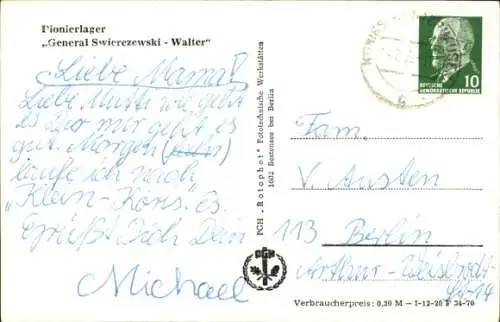 Pionierlager
„General Swierezewski - Walter"
Liebe Mama!
Liebe Mutti wie geht
es Dir mir geht es
gut. Morgen
laufe ich nach
"Klein-Köris". Es
grüßt Dich Dein
Michael
PGH „Rotophot" Fototechnische Werkstätten
1602 Bestensee bei Berlin
PGH
10
DEUTSCHE
DEMOKRATISCHE REPUBLIK
Fam.
V. Austen
113 Berlin
Arthur-Weisbrodt
Verbraucherpreis: 0,20 M — I-12-20 F 34-70